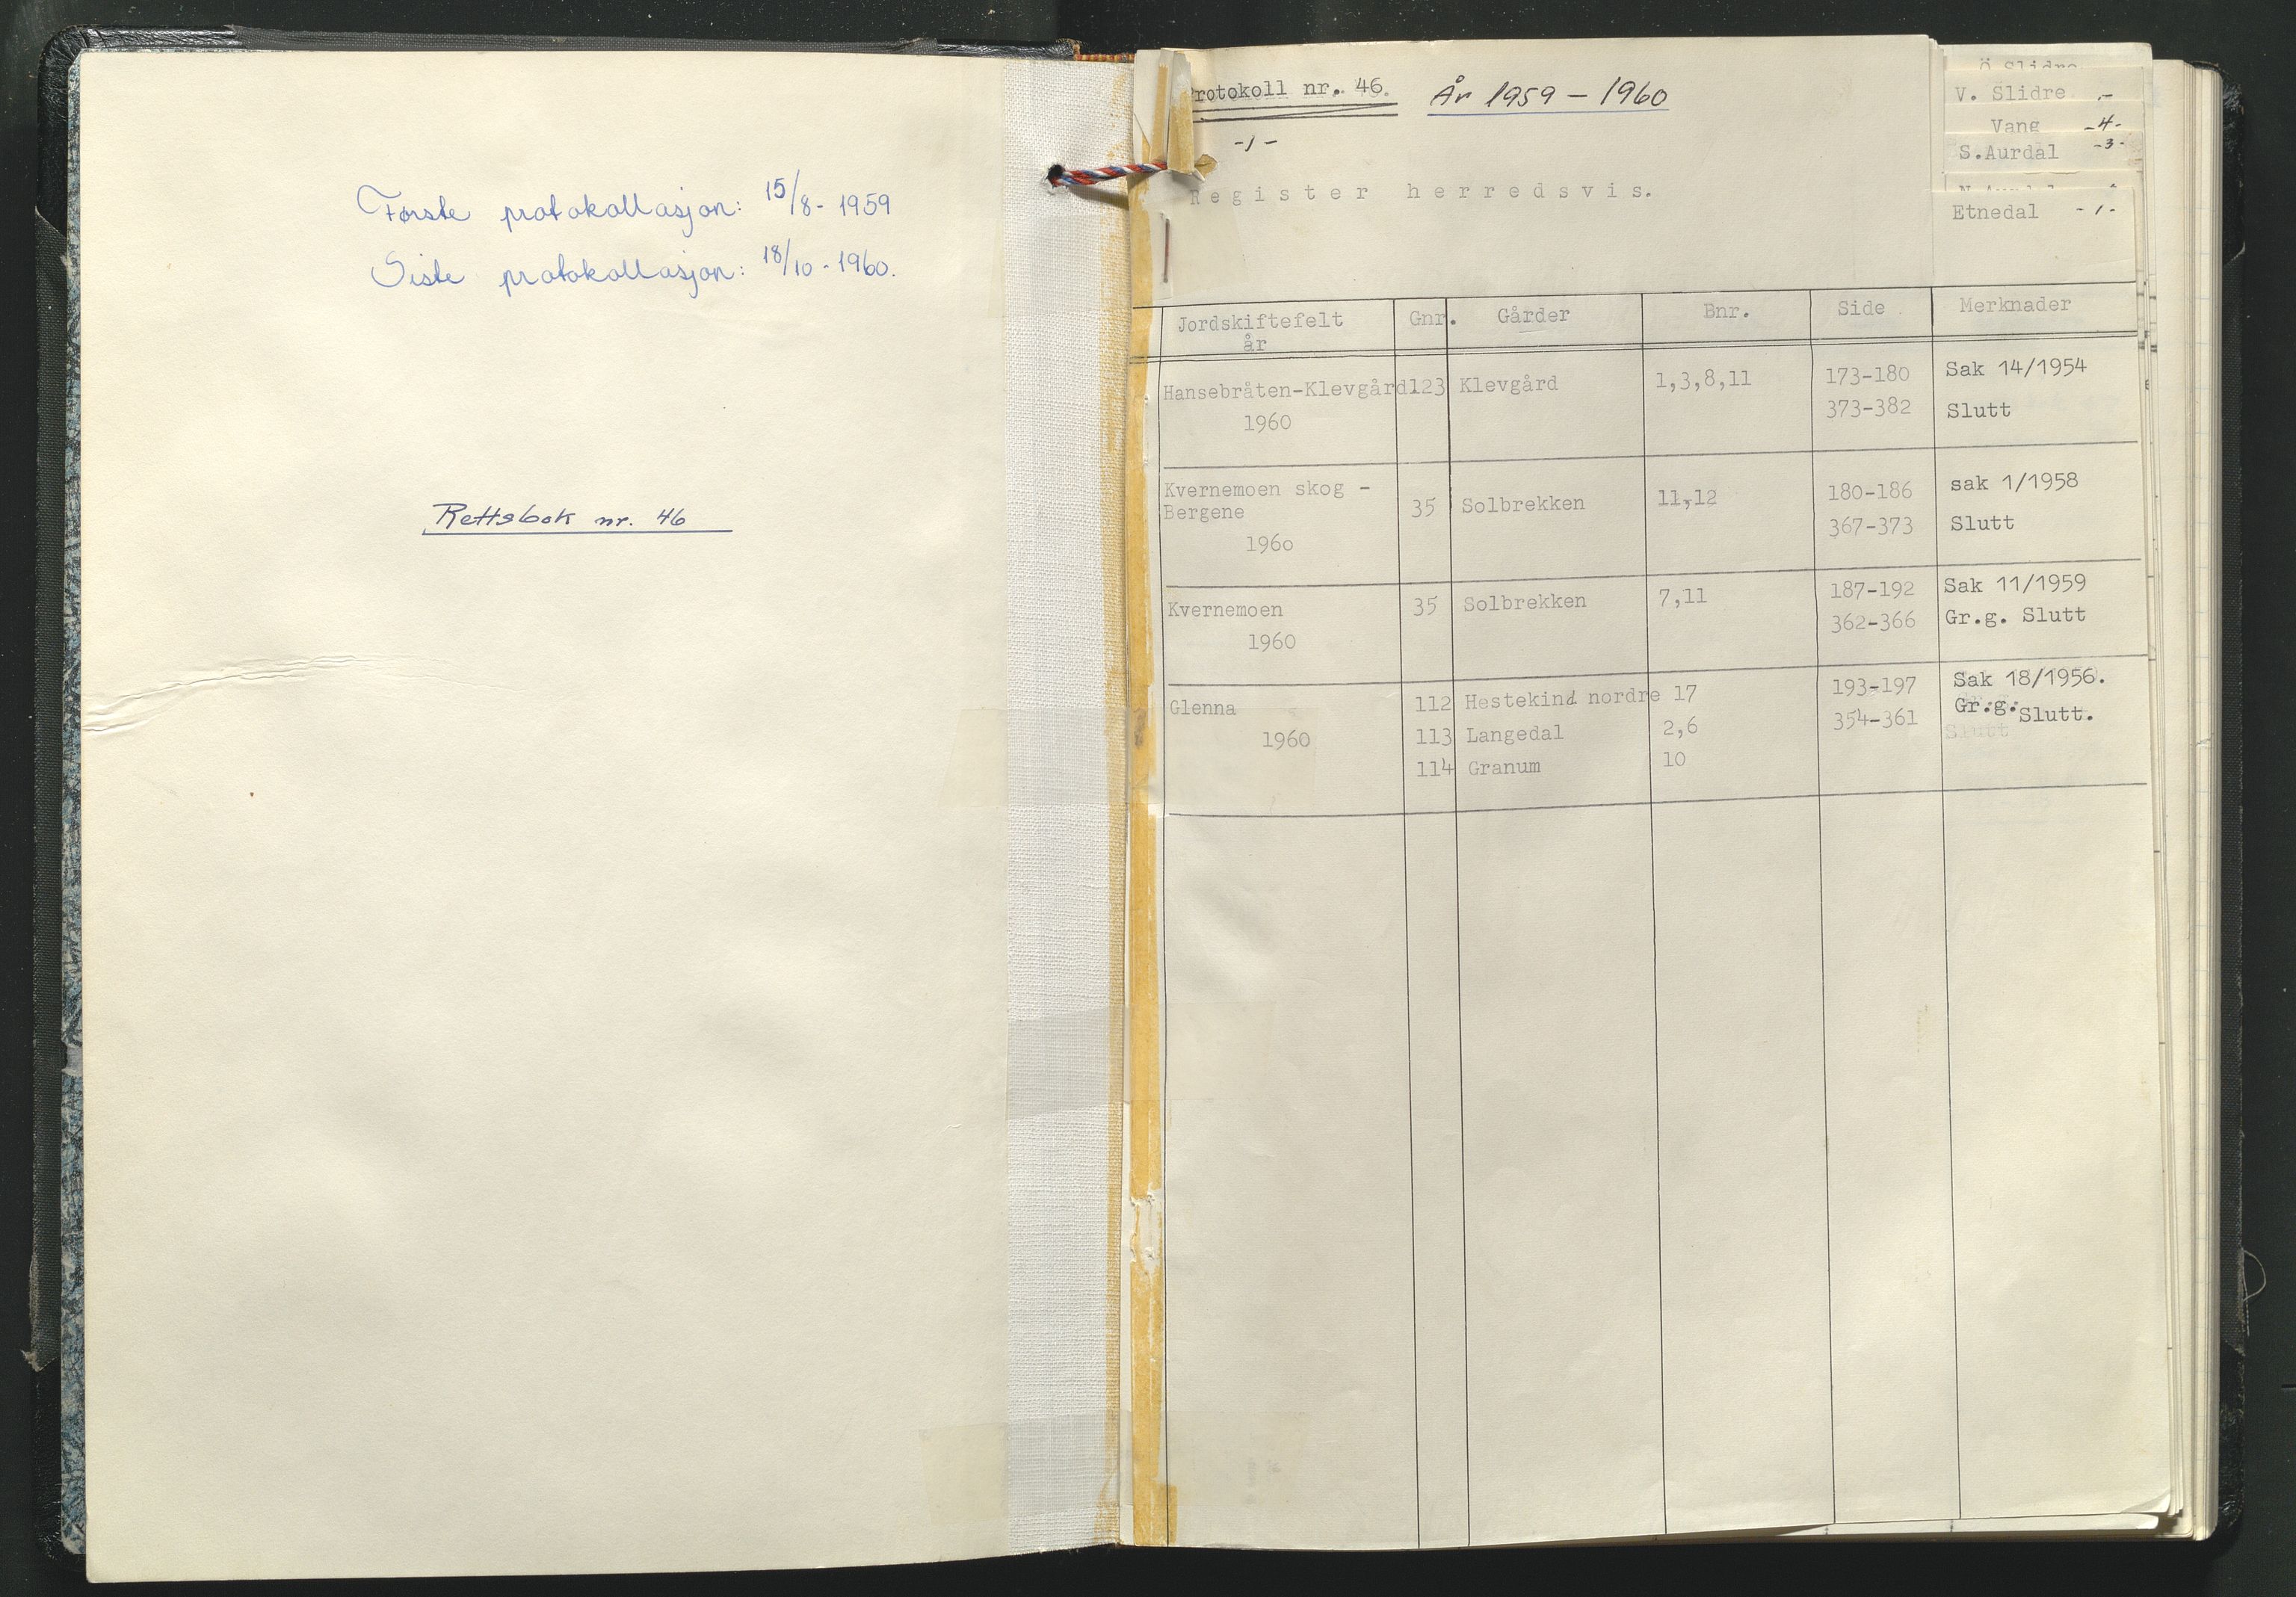 Første protokollasjon: 15/8- 1959
Siste protokollasjon: 18/10 - 1960.
Rettsbok nr. 46
rotokoll nr. 46. År 1959 - 1960
-1-
Register herredsvis.
V. Slidre
Vang -4-
S.Aurdal -3-
Etnedal -1-
Jordskiftefelt år Gnr. Gårder Bnr. Side Merknader
Hansebråten-Klevgård 123 Klevgård 1,3,8,11 173-180 Sak 14/1954
1960 373-382 Slutt
Kvernemoen skog - 180-186 sak 1/1958
Bergene 35 Solbrekken 11,12
196o 367-373 Slutt
Kvernemoen 35 Solbrekken 7,11 187-192 Sak 11/1959
1960 362-366 Gr.g. Slutt
Glenna 112 Hestekind nordre 17 193-197 Sak 18/1956.
1960 113 Langedal 2,6 354-361 Gr.g. Slutt.
114 Granum 10